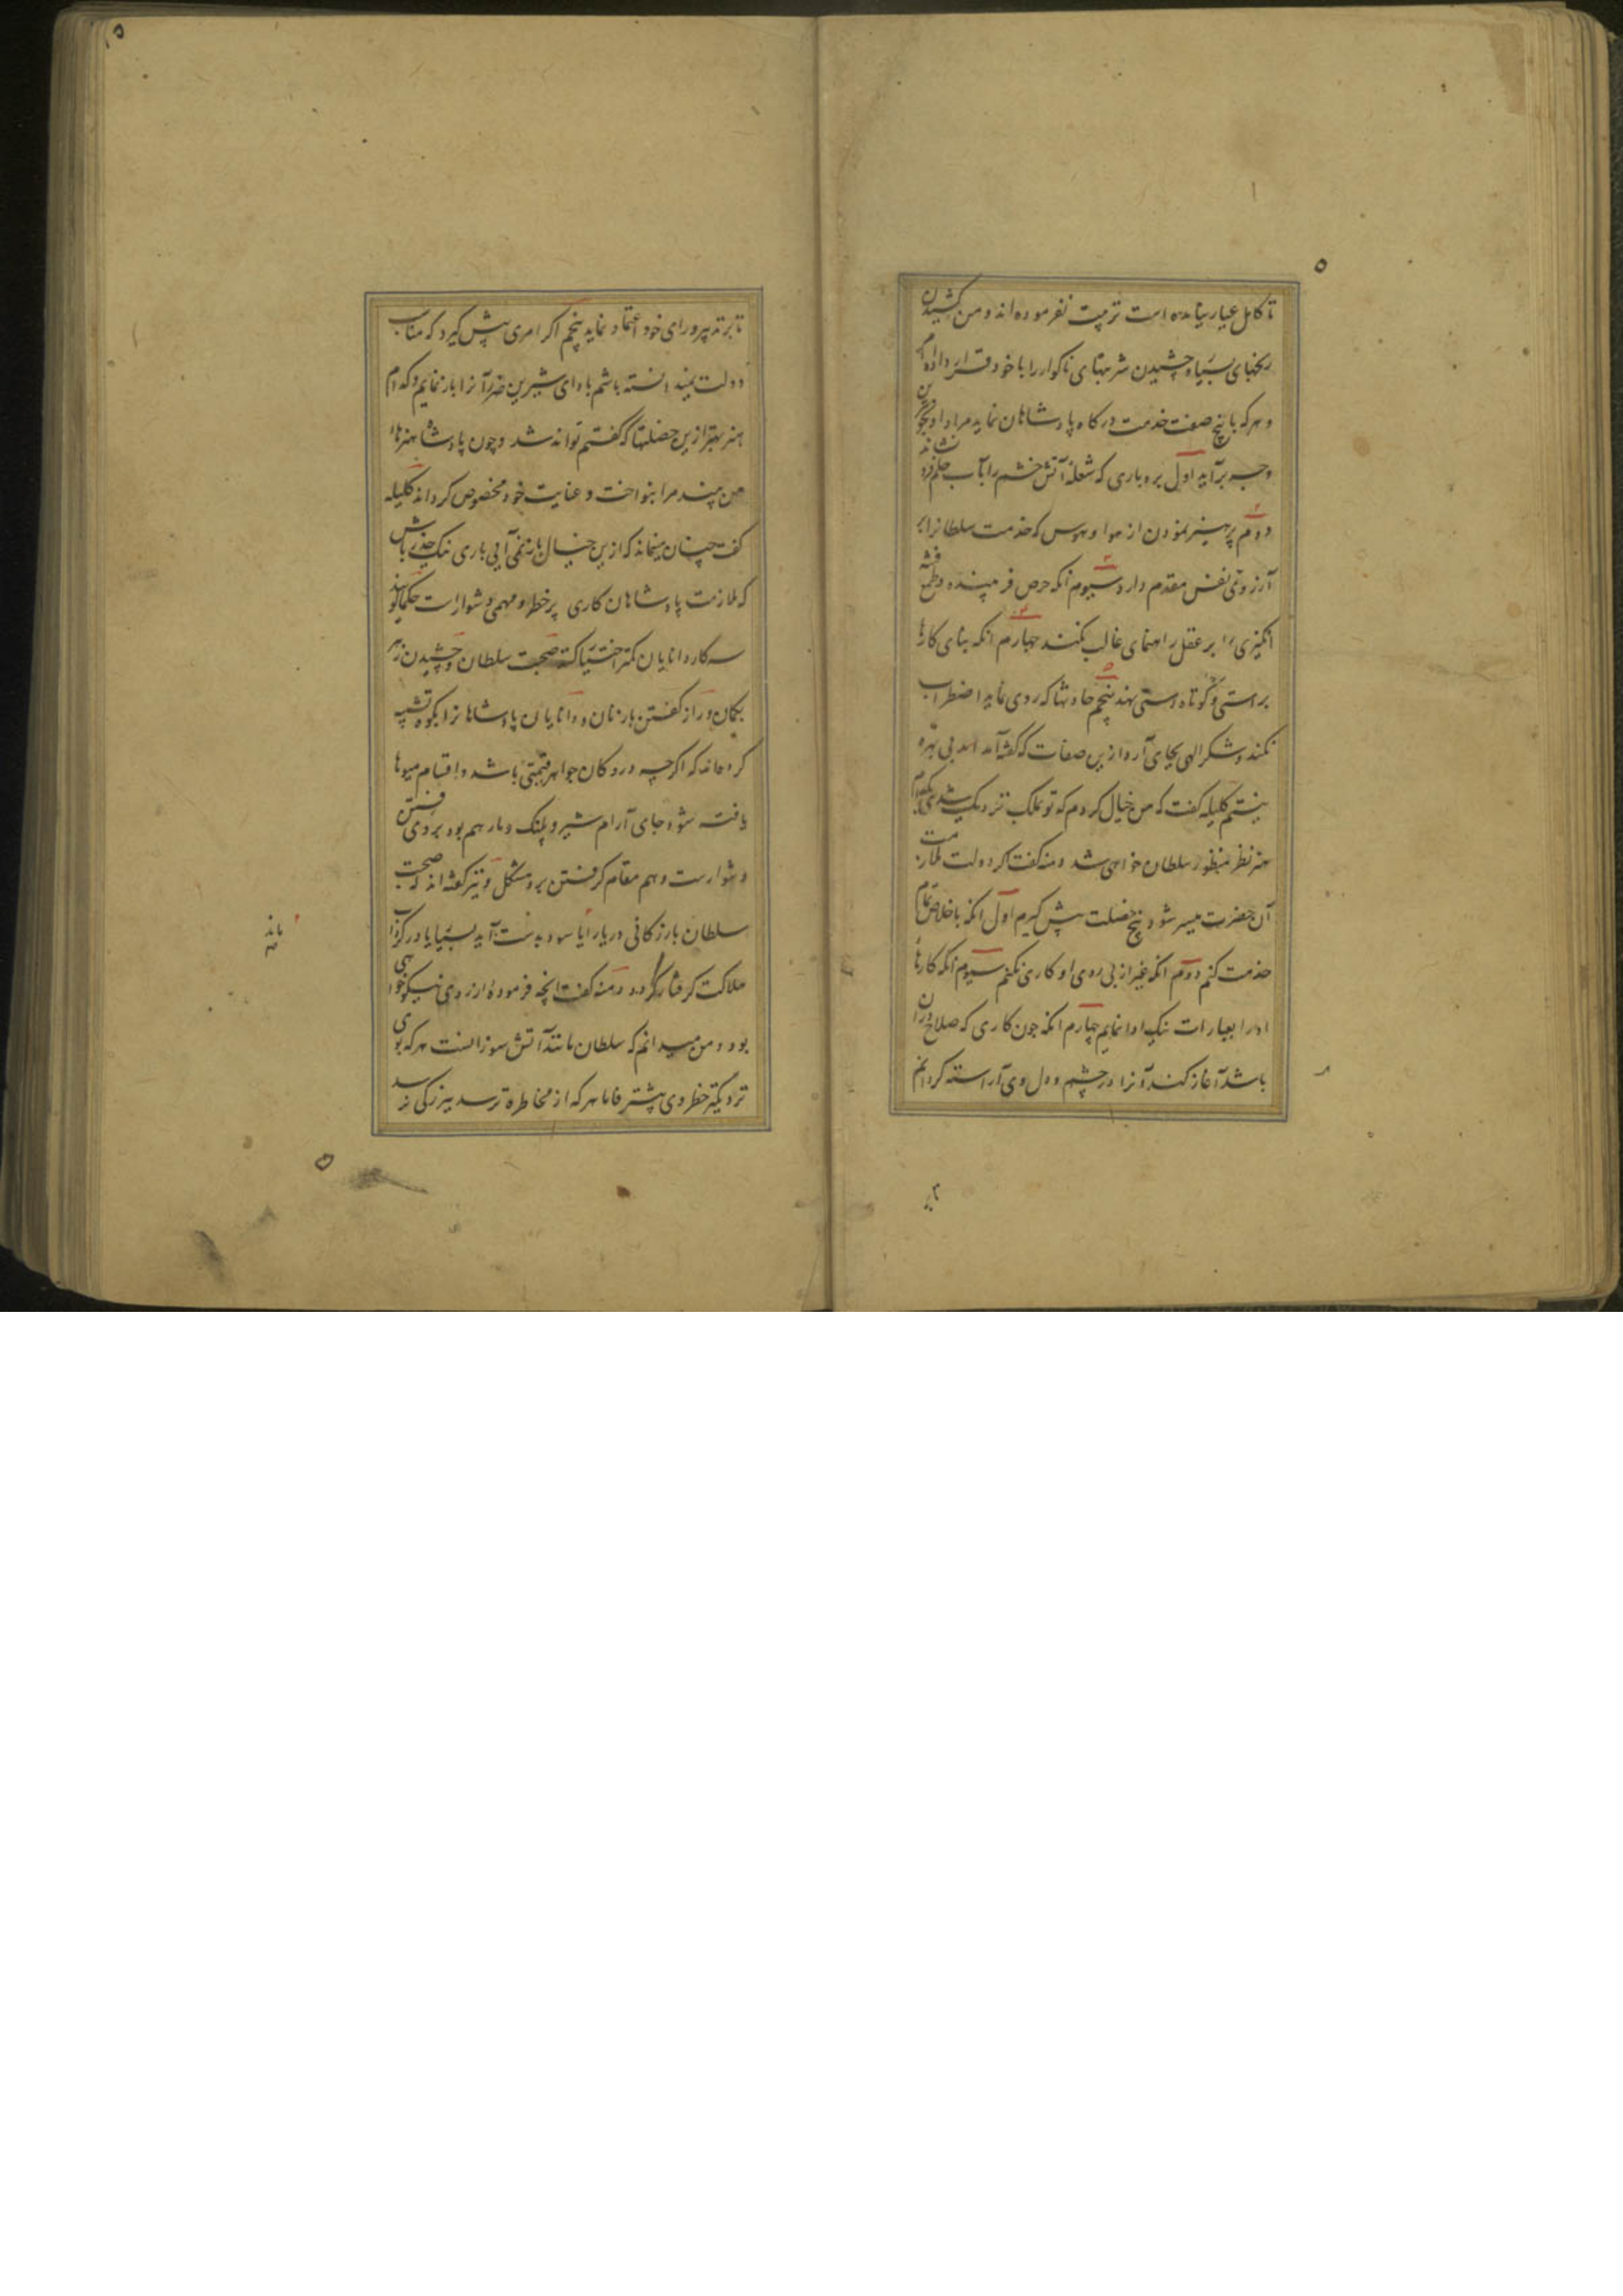 تا کامل عیار نیامده است تربیت نفرموده اند و من کشیدن
رنجهای بسیار و چشیدن شربتهای ناکوار را با خود قرار داده ام
و هر که با پنج صفت خدمت درکاه پادشاهان نماید مراد او
وجه برآید اول بردباری که شعله آتش خشم را بآب حلم فرو نشاند
دوم پرهیز نمودن از هوا و هوس که خدمت سلطانرا بر
آرزوی نفس مقدم دارد سیوم آنکه حرص فریبنده و طمع فتنه
انکیزی را بر عقل راهنمای غالب نکند چهارم آنکه بنای کارها
براستی و کوتاه دستی نهد پنجم حادثها که روی نماید اضطراب
نکند و شکر الهی بجای آرد و ازین صفات که کفته آمد بی بهره
نیستم کلیله کفت که من خیال کردم که تو بملک نزدیک شدی بکدام
هنر نظر منظور سلطان خواهی شد دمنه کفت اکر دولت ملازمت
آن حضرت میسر شود پنج خصلت پیش کیرم اول آنکه باخلاص تمام
خدمت کنم دوم آنکه غیر از پی روی او کاری نکنم سیوم آنکه کارهاء
او را بعبارات نیک ادا نمایم چهارم آنکه چون کاری که صلاح در آن
باشد آغاز کند آنرا در چشم و دل وی آراسته کردانم
تا بر تدبیر و رای خود اعتماد نماید پنجم اکر امری پیش کیرد که مناسب
دولت نباشد بادای شیرین ضرر آنرا باز نمایم و کدام
هنر بهتر ازین خصلتها که کفتم تواند شد و چون پادشاه هنرهاء
من بیند مرا بنواخت و عنایت خود مخصوص کرداند کلیله
کفت چنان مینماند که ازین خیال باز نمی آیی باری نیک حذر باش
که ملازمت پادشاهان کاری پر خطر و مهمی دشوار است حکما کویند
سه کار دانایان کمتر اختیار کنند صحبت سلطان و چشیدن زهر
بکمان و راز کفتن با زنان و دانایان پادشاهانرا بکوه تشبیه
کرده اند که اکرچه درو کان جواهر قیمتی باشد و اقسام میوها
یافته شود جای آرام شیر و پلنک و مار هم بود بر وی رفتن
دشوارست و هم مقام کرفتن برو مشکل و نیز کفته اند که صحبت
سلطان بازرکانی دریا را یا سود بدست آید بسیار یا در کرداب
هلاکت کرفتار کردد دمنه کفت آنچه فرموده از روی نیکوخواهی
بود و من میدانم که سلطان مانند آتش سوزانست هر که بوی
نزدیکتر خطر وی بیشتر فاما هر که از مخاطره ترسد ببزرکی نرسد
ماند